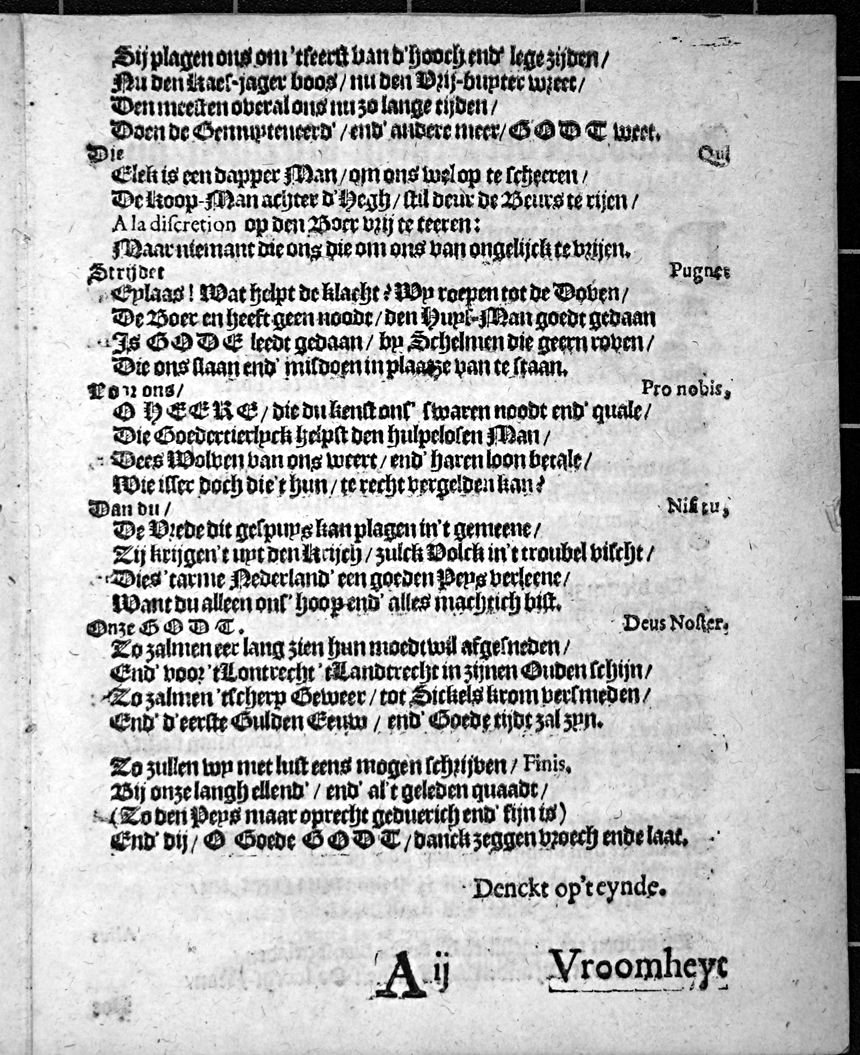 Sij plagen ons om 'tseerst van d'hooch end' lege zijden /
Nu den Kaes-jager boos / nu den Vrij-buyter wreet /
Den meesten overal ons nu zo lange tijden /
Doen de Gemuyteneerd' / end' andere meer / GODT weet.
Die Qui
Elck is een dapper Man / om ons wel op te scheeren /
De Koop-Man achter d'Hegh / stil deur de Beurs te rijen /
A la discretion op den Boer vrij te teeren:
Maar niemant die ons die om ons van ongelijck te vrijen.
Strijdet Pugnet
Eylaas! Wat helpt de klacht? Wy roepen tot de Doven /
De Boer en heeft geen noodt / den Huys-Man goedt gedaan
Is GODE leedt gedaan / by Schelmen die geern roven /
Die ons slaan end' misdoen in plaatze van te staan.
Voor ons / Pro nobis,
O HEERE / die du kenst ons' swaren noodt end' quale /
Die Goedertierlyck helpst den hulpelosen Man /
Dees Wolven van ons weert / end' haren loon betale /
Wie isser doch die't hun / te recht vergelden kan?
Dan du / Nisi tu,
De Vrede dit gespuys kan plagen in't gemeene /
Zij krijgen't uyt den Krijch / zulck Volck in't troubel vischt /
Dies 'tarme Nederland' een goeden Peys verleene /
Want du alleen ons' hoop end' alles machtich bist.
Onze GODT. Deus Noster.
Zo zalmen eer lang zien hun moedtwil afgesneden /
End' voor 'tLontrecht 'tLandtrecht in zijnen Ouden schijn /
Zo zalmen 'tscherp Geweer / tot Sickels krom versmeden /
End' d'eerste Gulden Eeuw / end' Goede tijdt zal zyn.
Zo zullen wy met lust eens mogen schrijven / Finis.
Bij onze langh ellend' / end' al't geleden quaadt /
(Zo den Peys maar oprecht geduerich end' fijn is)
End' dij / O Goede GODT / danck zeggen vroech ende laat.
Denckt op't eynde.
A ij Vroomheyt